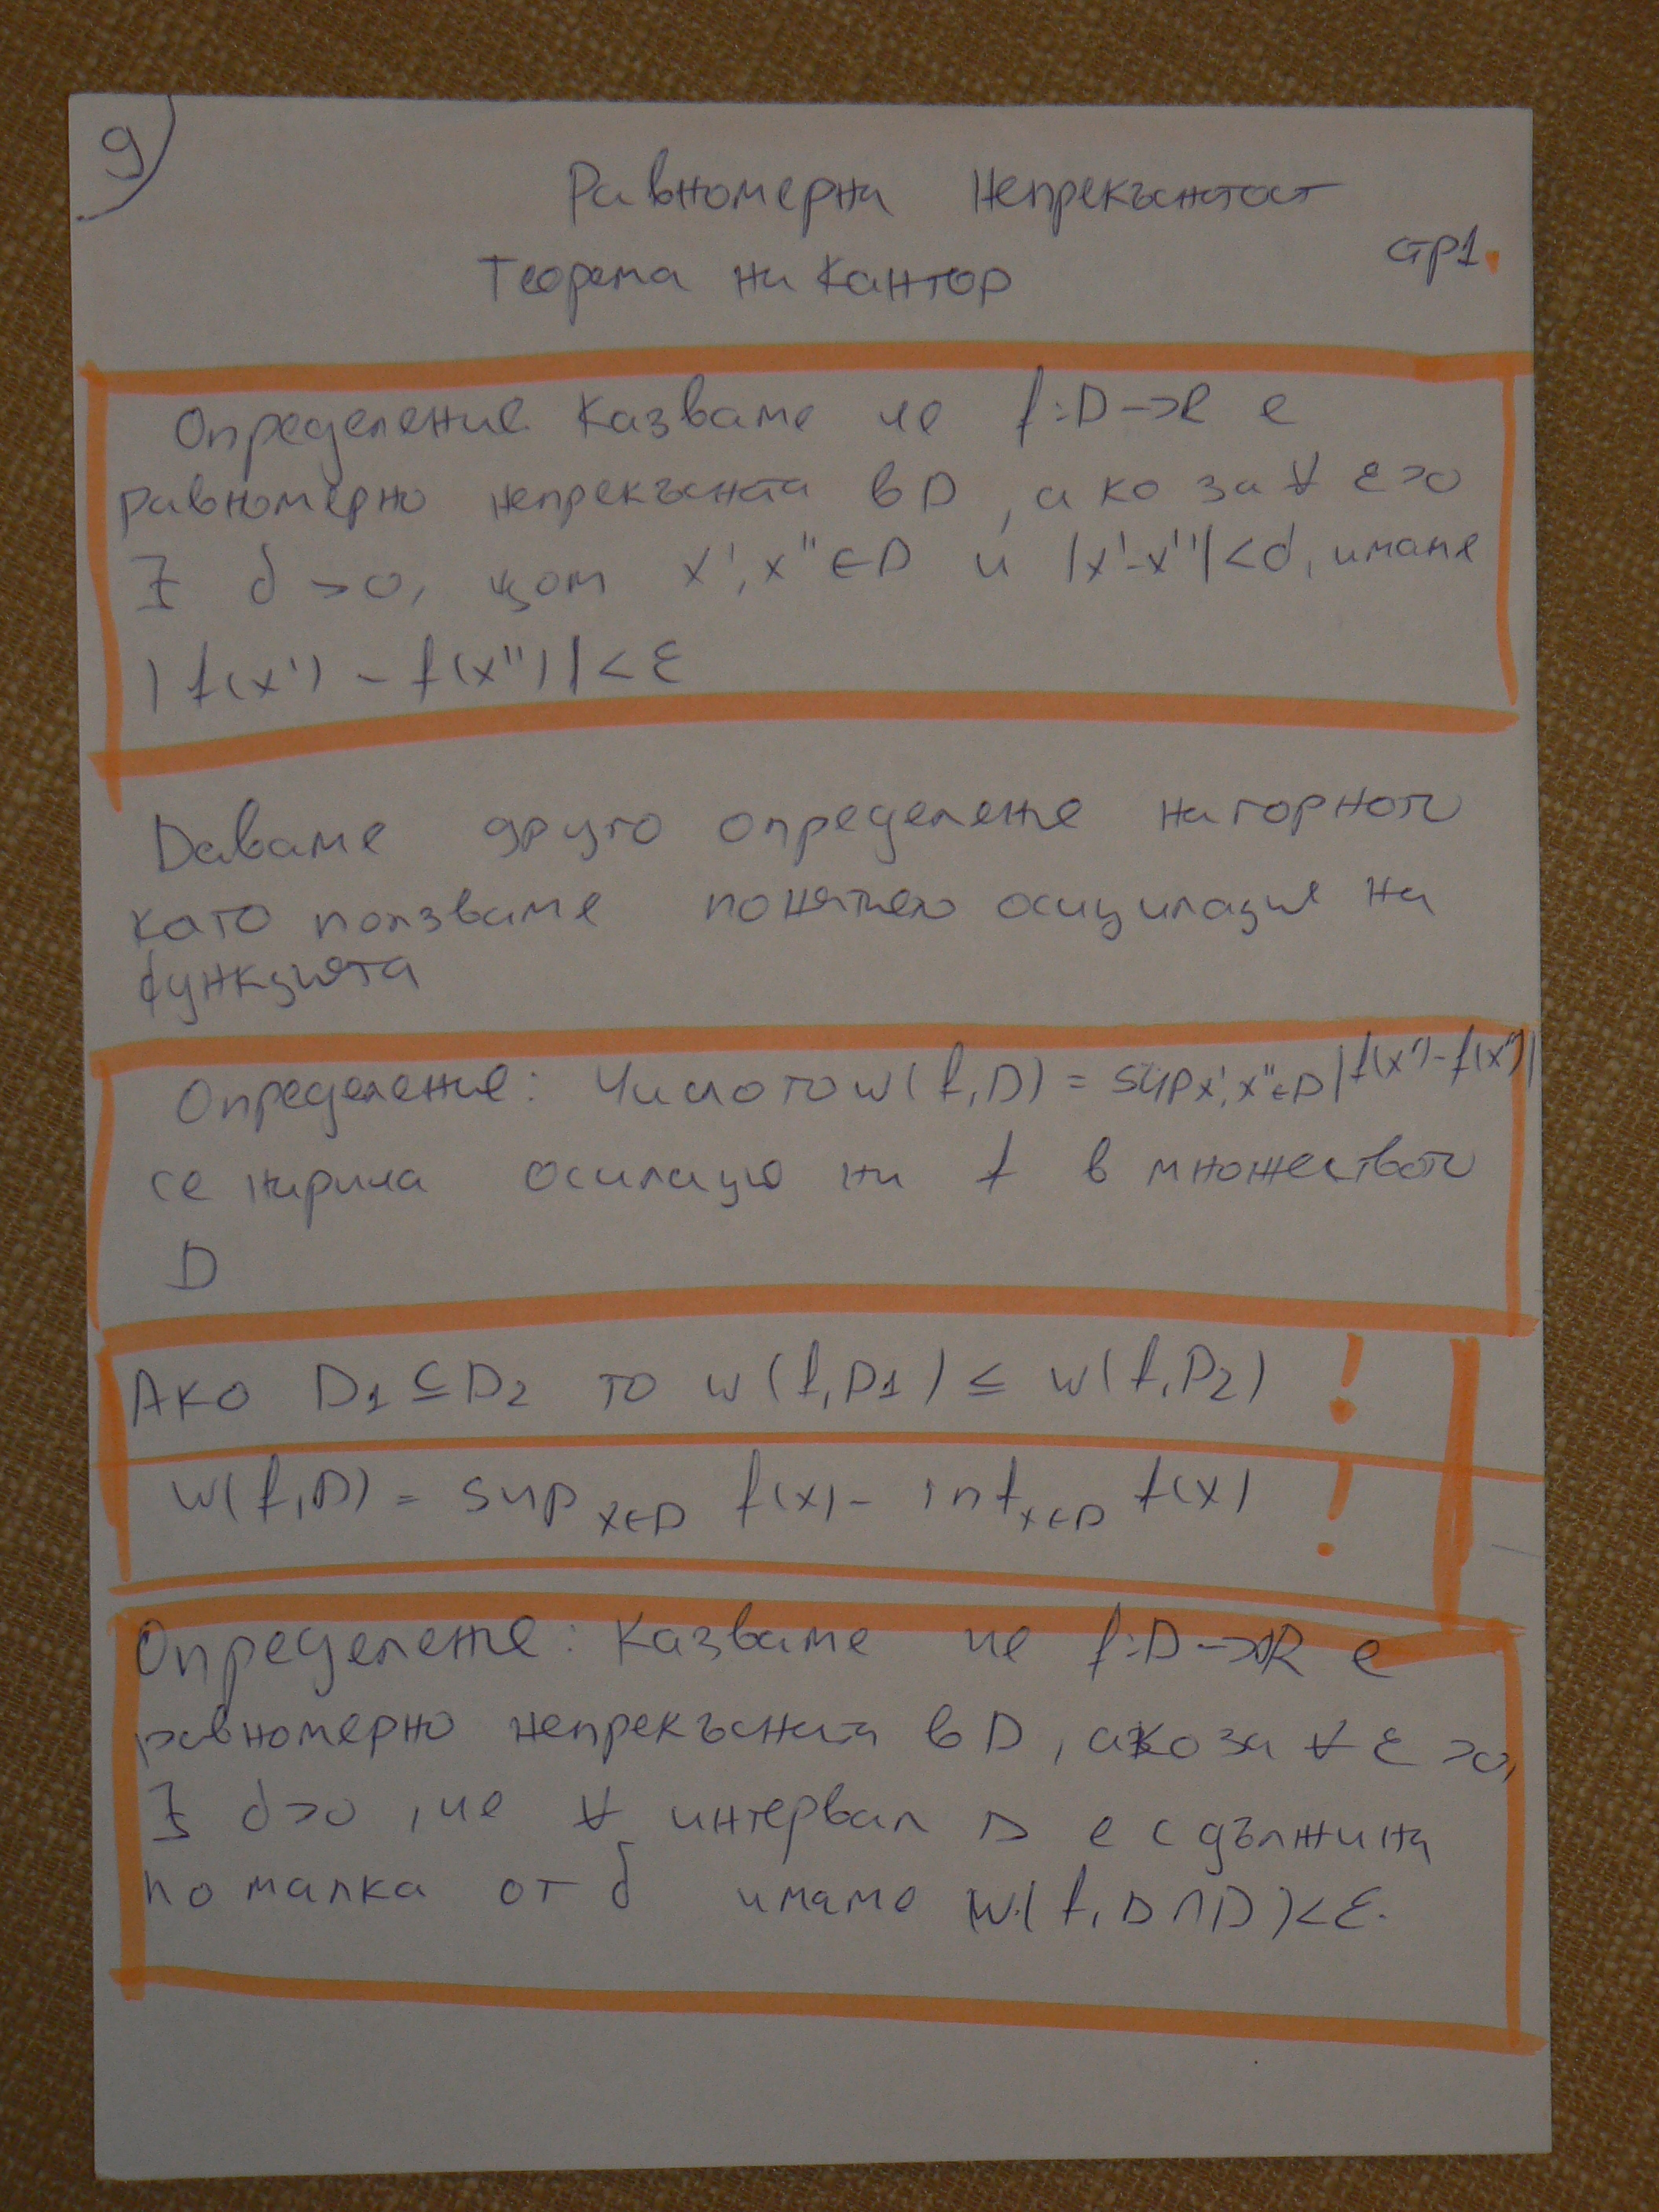 9)
Равномерна Непрекъснатост
стр1.
Теорема на Кантор
Определение Казваме че f:D->R е
равномерно непрекъсната в D, ако за ∀ ε>0
∃ δ>0, щом x', x'' ∈ D и |x'-x''|<δ, имаме
|f(x') - f(x'')|<ε
Даваме друго определение на горното
като ползваме понятието осцилация на
функцията
Определение: Числото w(f,D) = sup x', x''∈D |f(x')-f(x'')|
се нарича осилация на f в множеството
D
Ако D1 ⊆ D2 то w(f,D1) ≤ w(f,D2) !
w(f,D) = sup x∈D f(x) - inf x∈D f(x) !
Определение: Казваме че f:D->R е
равномерно непрекъсната в D, ако за ∀ ε>0,
∃ δ>0, че ∀ интервал Δ е с дължина
по малка от δ имаме w(f, Δ∩D)<ε.